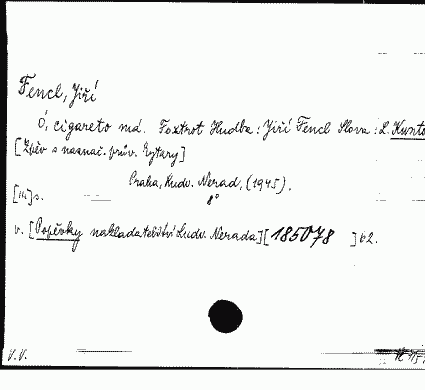 Fencl, Jiří
Ó, cigareto má. Foxtrot Hudba: Jiří Fencl Slova: L.
[Zpěv s naznač. prův. kytary]
Praha, Ludv. Nerad, (1945).
8°
s.
v. [Popěvky nakladatelství Ludv. Nerada] [185078] 62.
V.V.